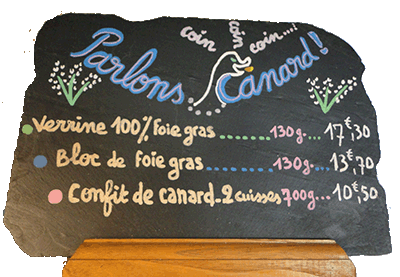 coin coin coin...!
Parlons Canard!
Verrine 100% Foie gras ........ 130g... 17€,30
Bloc de Foie gras ........ 130g... 13€,70
Confit de canard_2 cuisses 700g... 10€,50